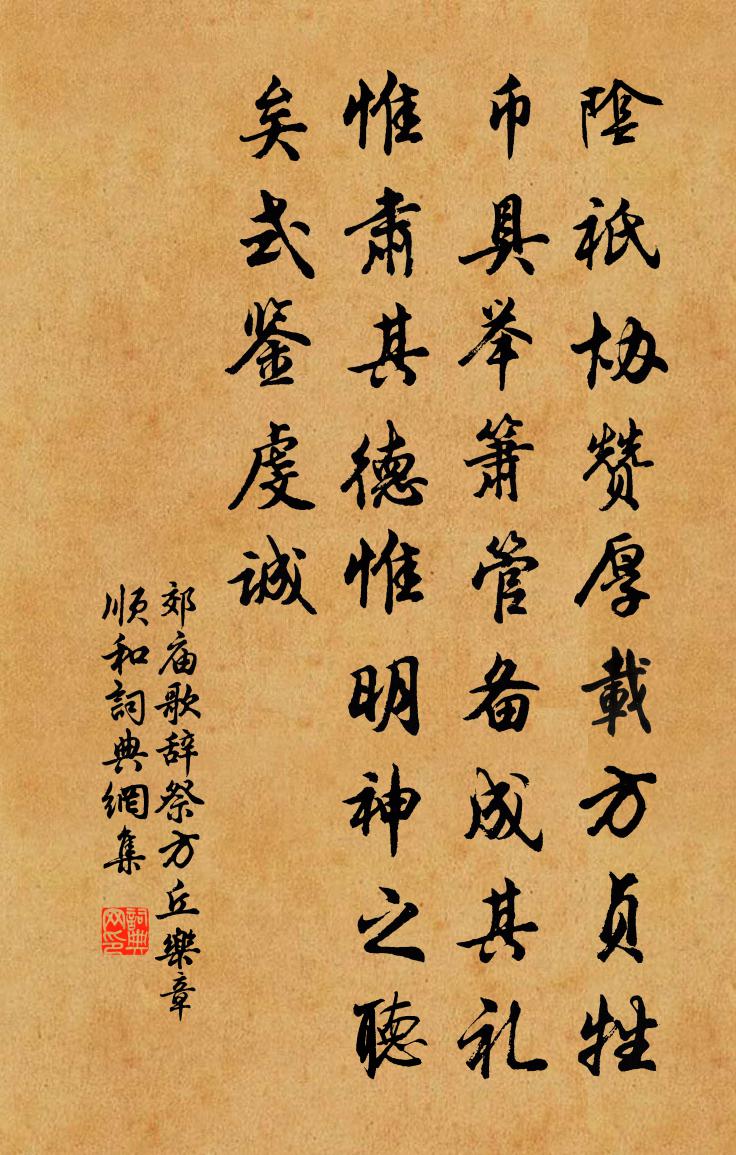 陰祇协赞厚載方貞牲
币具举箫管备成其礼
惟肃其德惟惟明神之聽
矣式鉴虔诚
郊庙歌辞祭方丘樂章
顺和詞典網集
詞典网印